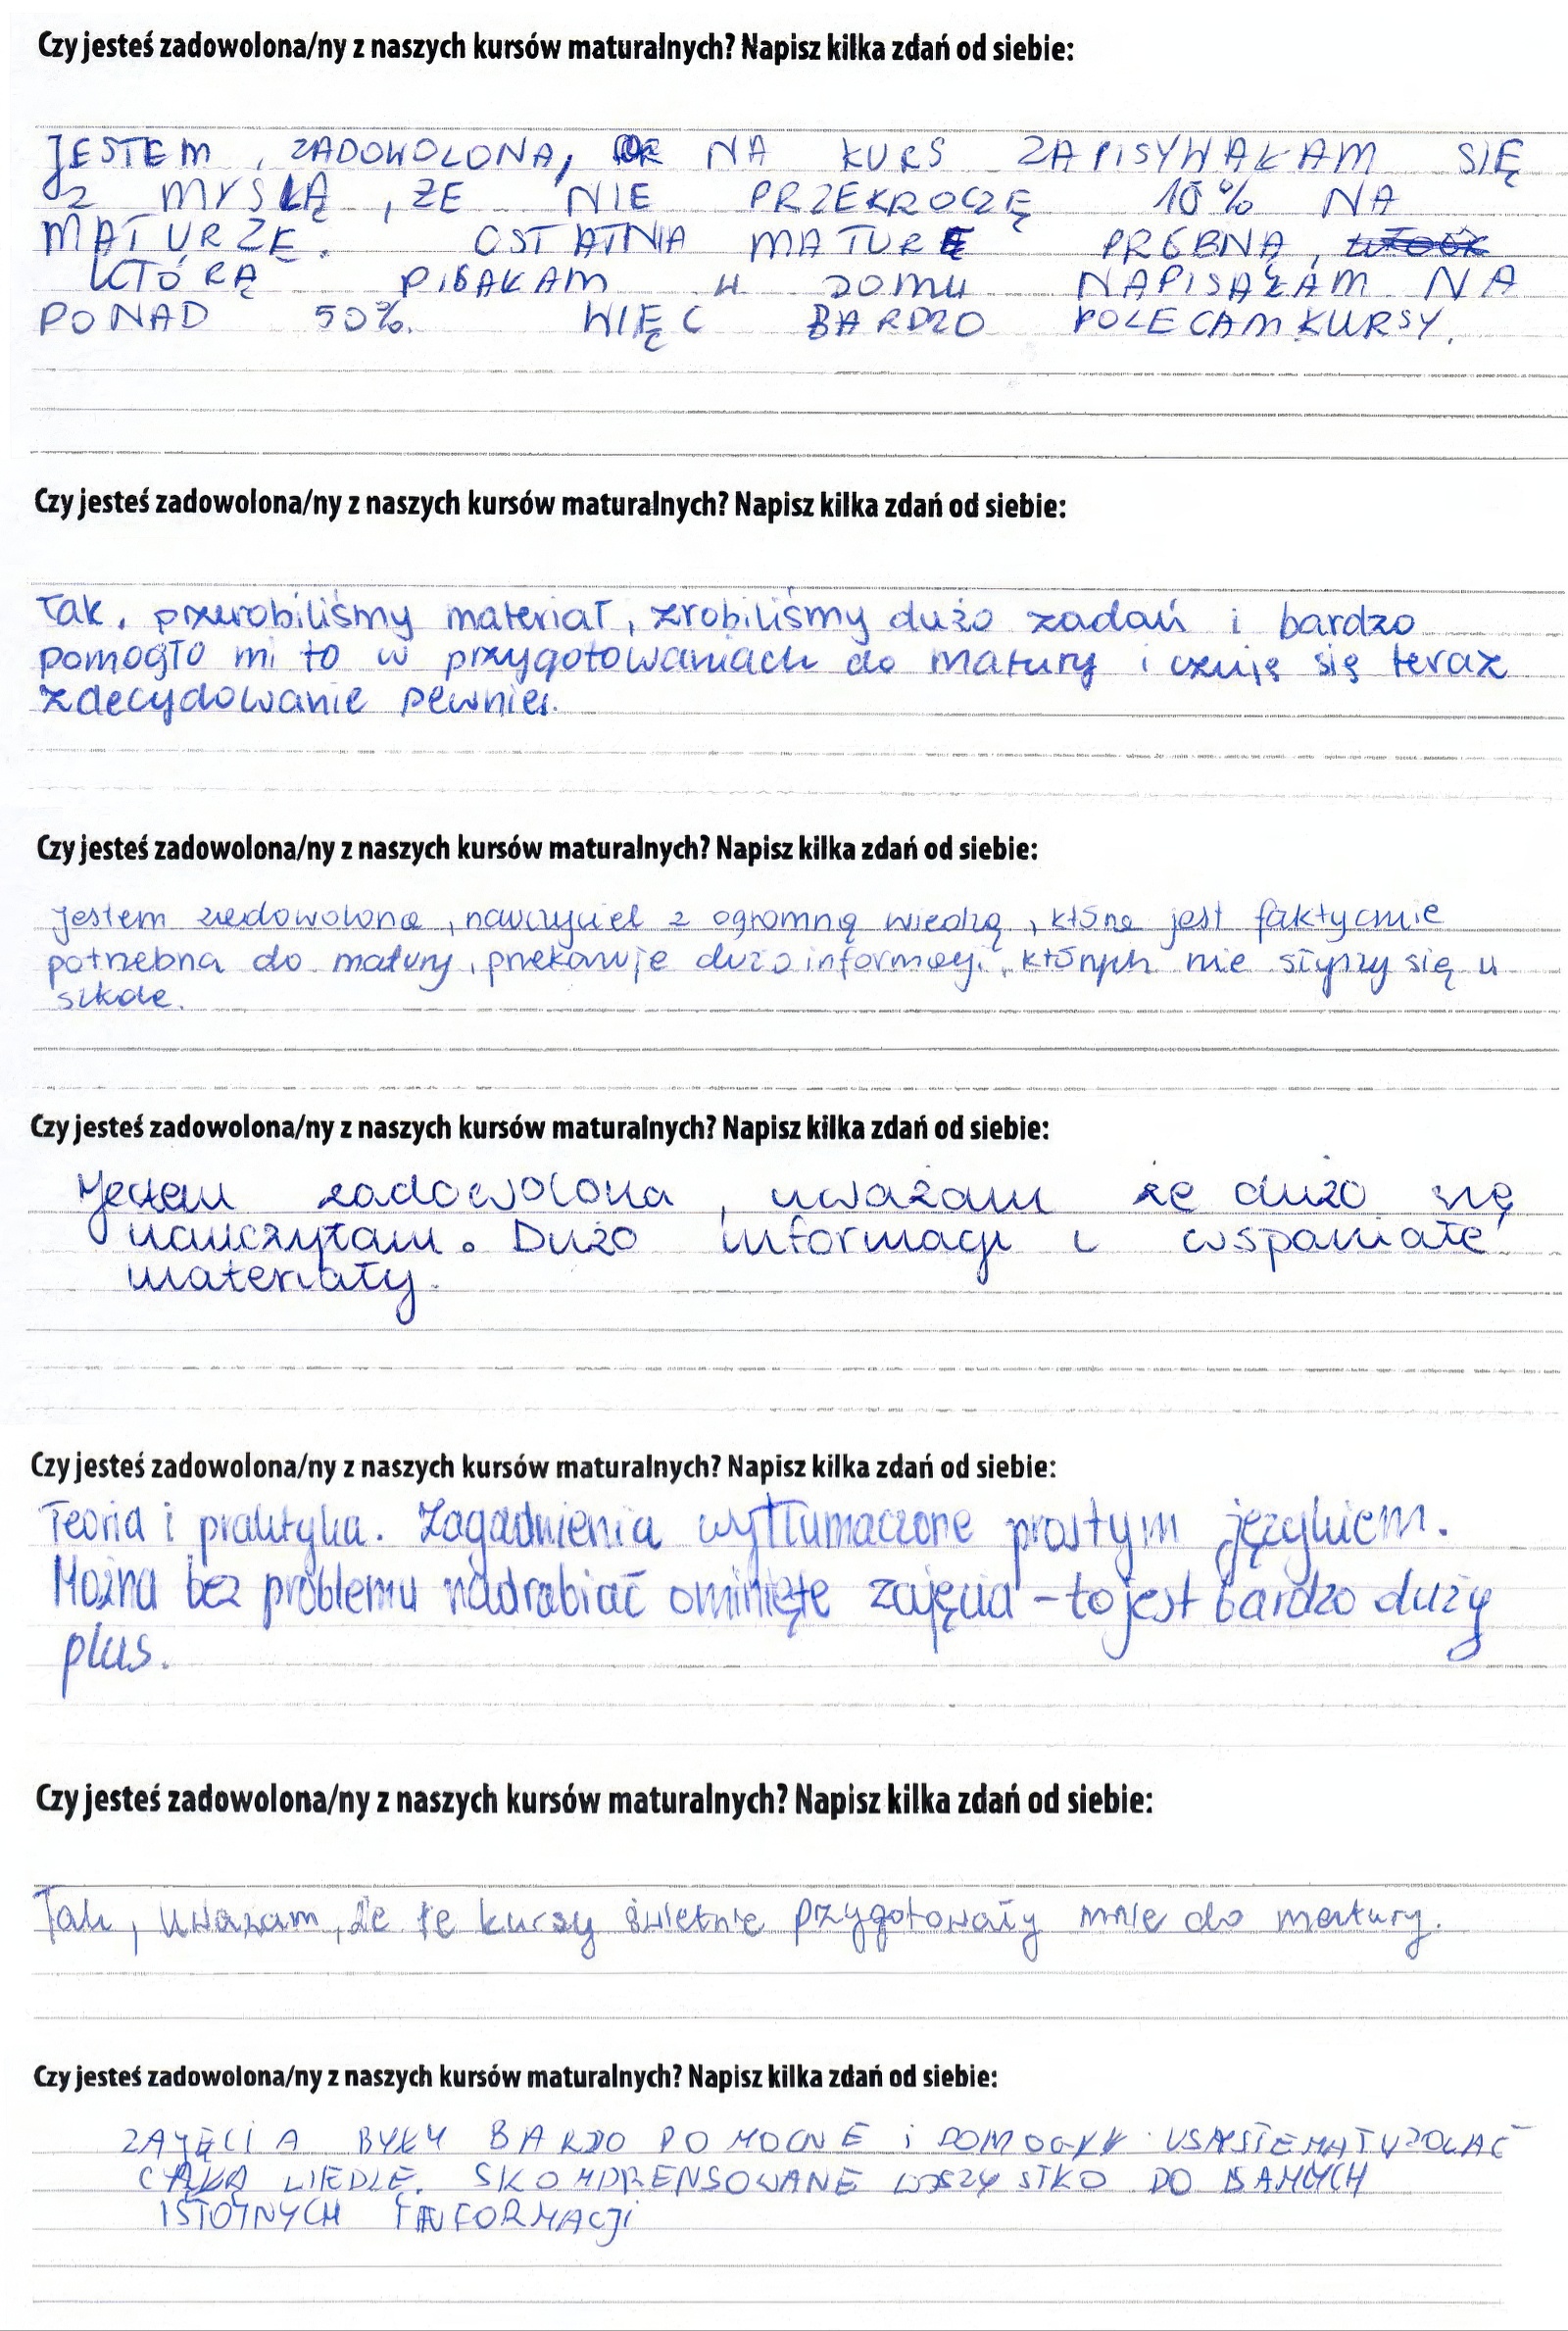 Czy jesteś zadowolona/ny z naszych kursów maturalnych? Napisz kilka zdań od siebie:
JESTEM, ZADOWOLONA, NA KURS ZAPISYWAŁAM SIĘ
Z MYSLĄ, ŻE NIE PRZEKROCZĘ 10% NA
MATURZE. OSTATNIA MATURĘ PRÓBNĄ,
KTÓRĄ PISAŁAM W DOMU NAPISAŁAM NA
PONAD 50%. WIĘC BARDZO POLECAM KURSY.
Czy jesteś zadowolona/ny z naszych kursów maturalnych? Napisz kilka zdań od siebie:
Tak, przerobiliśmy materiał, zrobiliśmy dużo zadań i bardzo
pomogło mi to w przygotowaniach do matury i czuję się teraz
zdecydowanie pewniej.
Czy jesteś zadowolona/ny z naszych kursów maturalnych? Napisz kilka zdań od siebie:
Jestem zadowolona, nauczyciel z ogromną wiedzą, która jest faktycznie
potrzebna do matury, przekazuje dużo informacji, których nie słyszy się w
szkole.
Czy jesteś zadowolona/ny z naszych kursów maturalnych? Napisz kilka zdań od siebie:
Jestem zadowolona, uważam że dużo się
nauczyłam. Dużo informacji i wspaniałe
materiały.
Czy jesteś zadowolona/ny z naszych kursów maturalnych? Napisz kilka zdań od siebie:
Teoria i praktyka. Zagadnienia wytłumaczone prostym językiem.
Można bez problemu nadrabiać ominięte zajęcia - to jest bardzo duży
plus.
Czy jesteś zadowolona/ny z naszych kursów maturalnych? Napisz kilka zdań od siebie:
Tak, uważam, że te kursy świetnie przygotowały mnie do matury.
Czy jesteś zadowolona/ny z naszych kursów maturalnych? Napisz kilka zdań od siebie:
ZAJĘCIA BYŁY BARDZO POMOCNE I POMOGŁY USYSTEMATYZOWAĆ
CAŁĄ WIEDZĘ. SKOMPRENSOWANE WSZYSTKO DO SAMYCH
ISTOTNYCH INFORMACJI